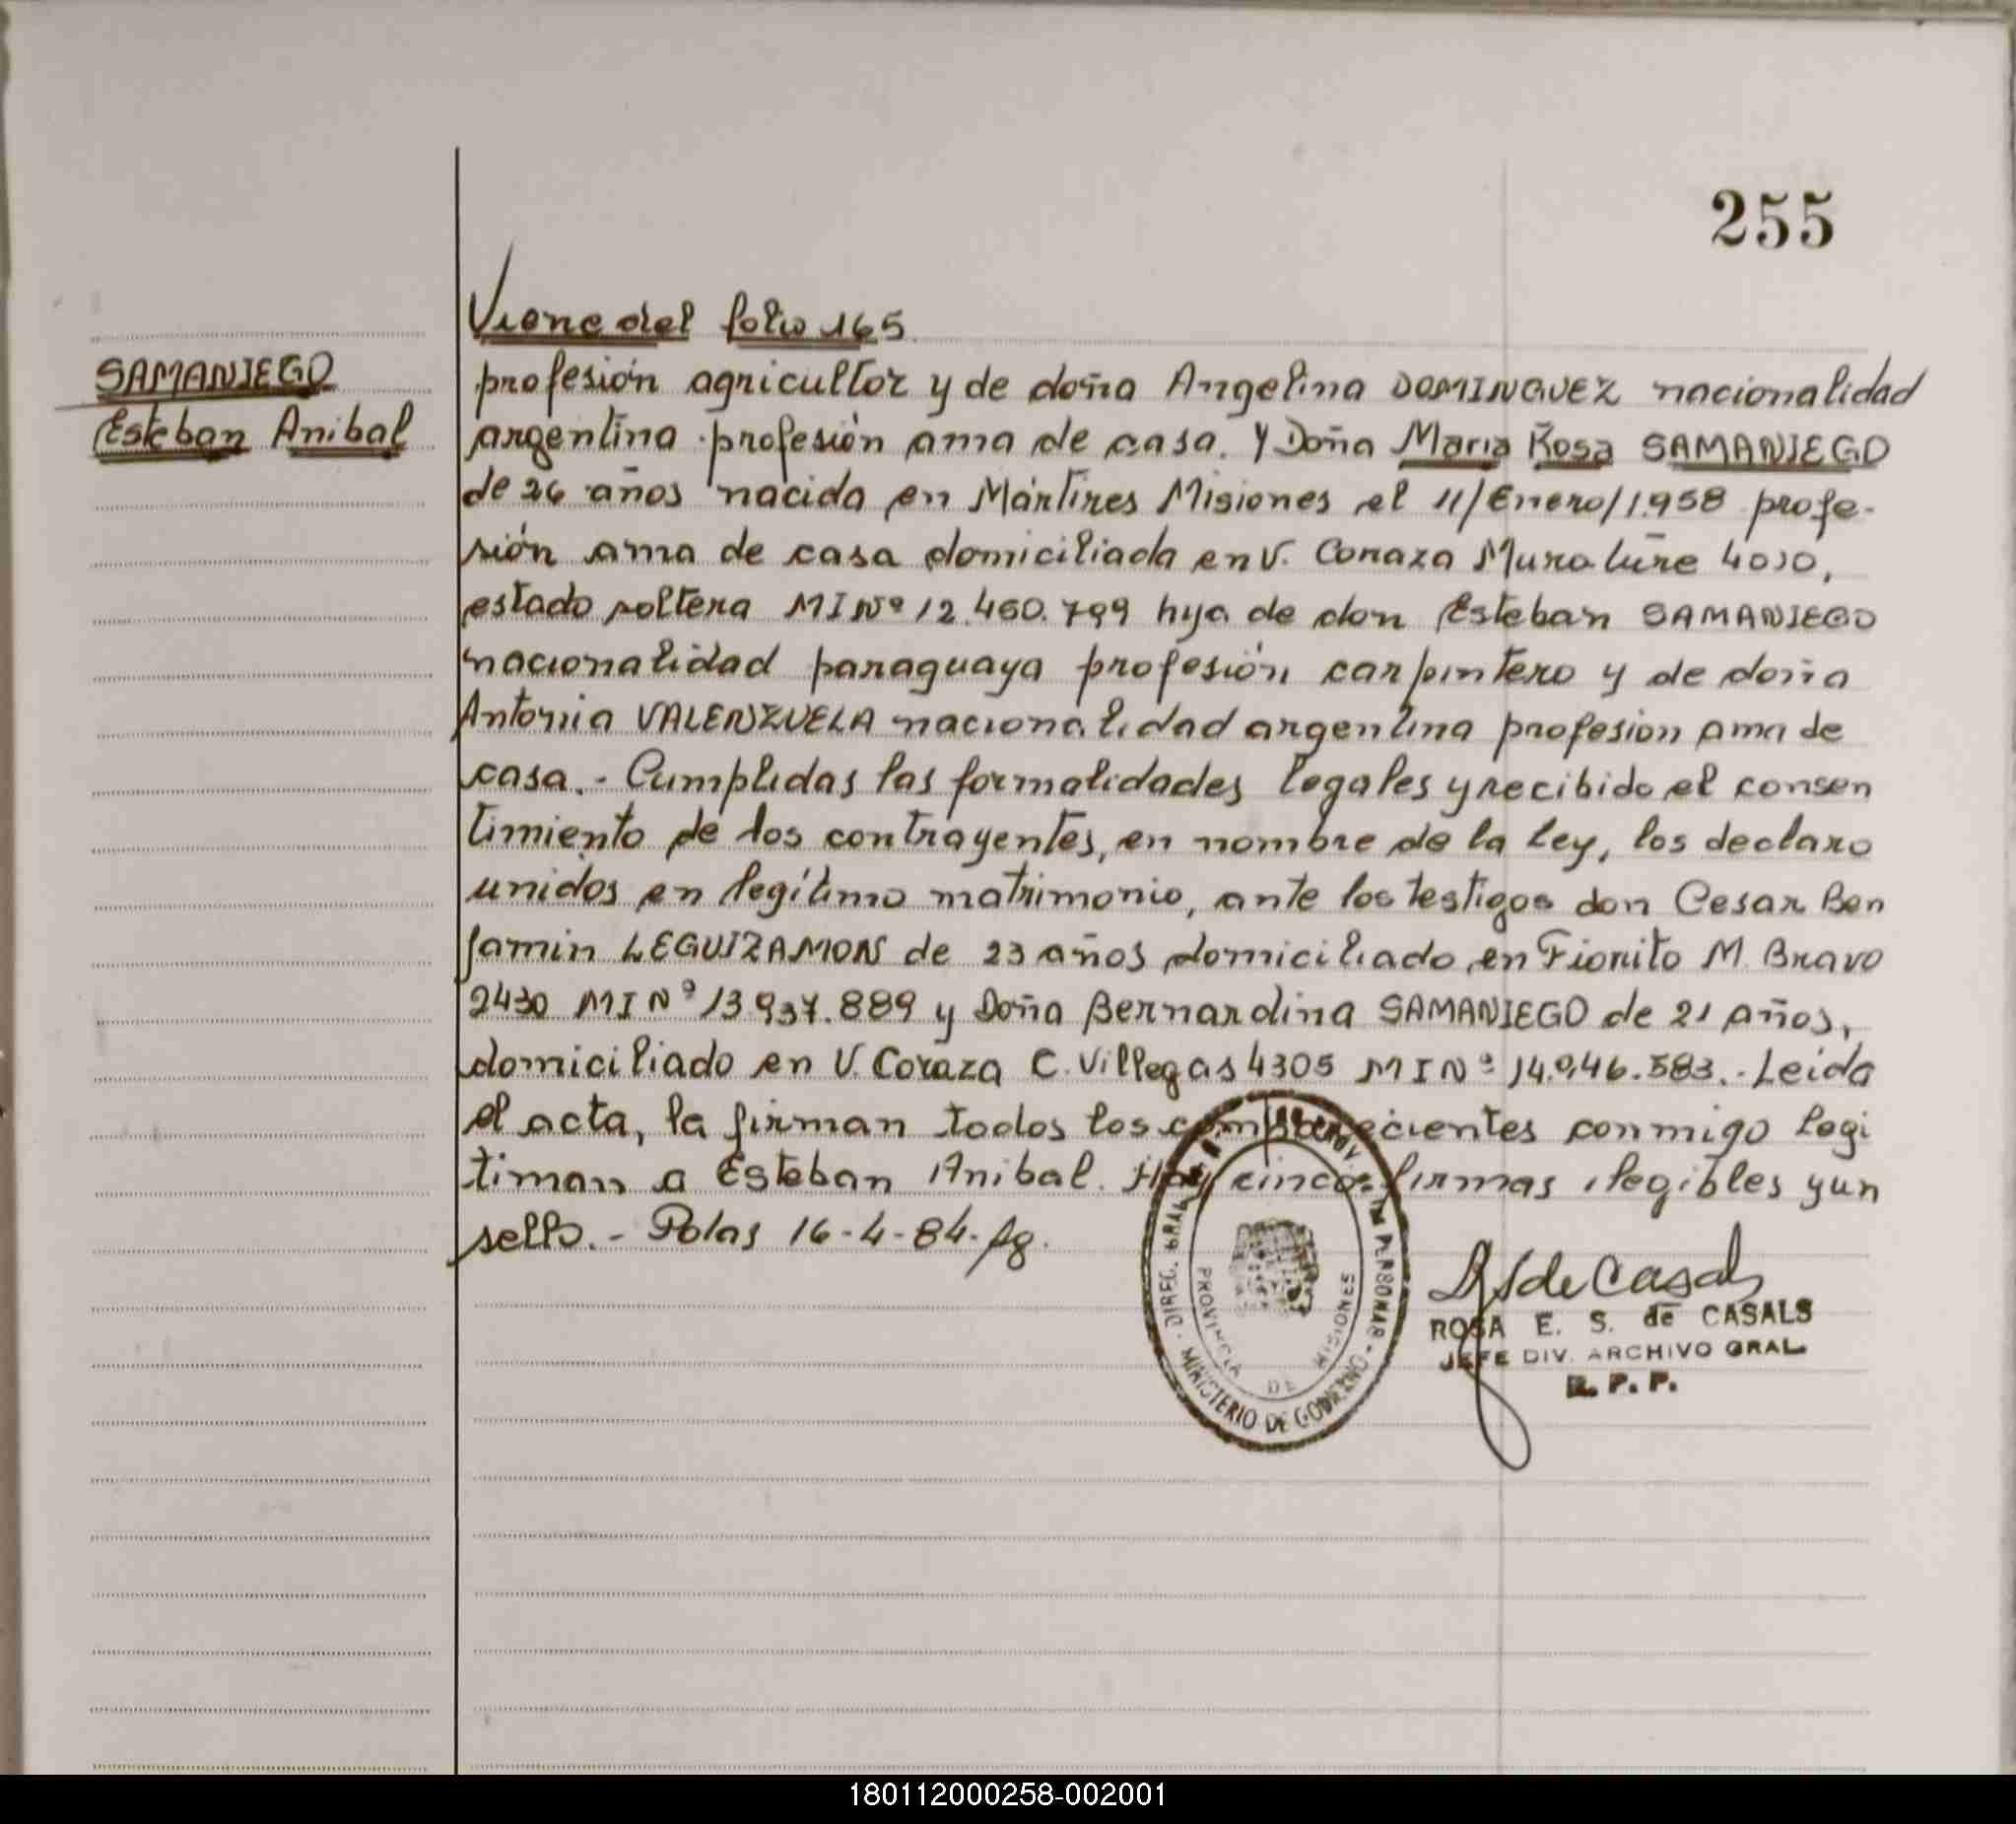 255
Viene del folio 165.
SAMANIEGO
Esteban Anibal
profesión agricultor y de doña Angelina DOMINGUEZ nacionalidad
argentina profesión ama de casa. Y Doña Maria Rosa SAMANIEGO
de 26 años nacida en Mártires Misiones el 11/Enero/1.958 profe-
sión ama de casa domiciliada en V. Coraza 4030,
estado soltera MI Nº 12.460.799 hija de don Esteban SAMANIEGO
nacionalidad paraguaya profesión carpintero y de doña
Antonia VALENZUELA nacionalidad argentina profesion ama de
casa.- Cumplidas las formalidades legales y recibido el consen
timiento de los contrayentes, en nombre de la ley, los declaro
unidos en legítimo matrimonio, ante los testigos don Cesar Ben
jamin LEGUIZAMON de 23 años domiciliado en Fiorito M. Bravo
2430 MI Nº 13.937.889 y Doña Bernardina SAMANIEGO de 21 años,
domiciliado en V. Coraza C. Villegas 4305 MI Nº 14.946.583.- Leida
el acta, la firman todos los comparecientes conmigo legi
timan a Esteban Anibal. Hay cinco firmas ilegibles y un
sello.- Pdas 16-4-84.
DIREC. GRAL.
MINISTERIO DE GOBIERNO
PROVINCIA DE MISIONES
ROSA E. S. de CASALS
JEFE DIV. ARCHIVO GRAL.
R. P. P.
180112000258-002001